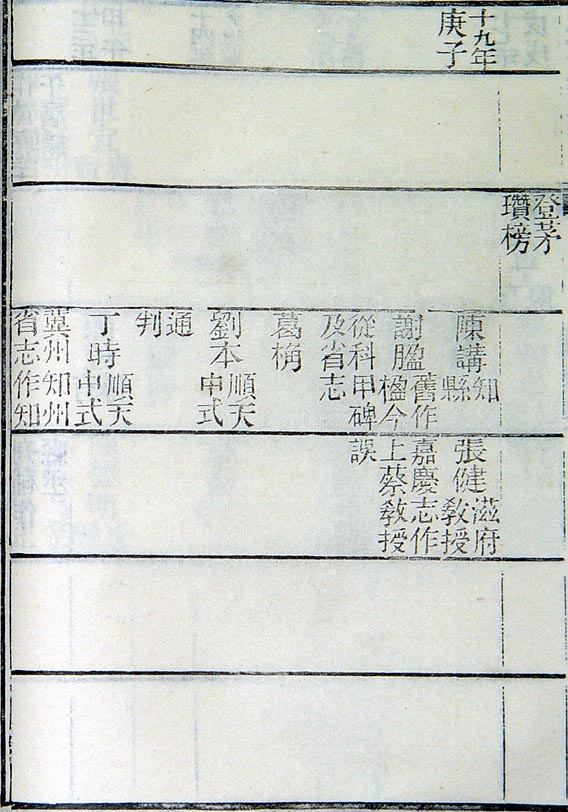 十九年
庚子
登茅
瓚榜
陳講
知
縣
謝
舊作
楹今
從科甲碑
及省志
葛
劉本
順天
中式
通
判
丁時
順天
中式
冀州知州
省志作知
張健
滋府
教授
嘉慶志作
上蔡教授
誤